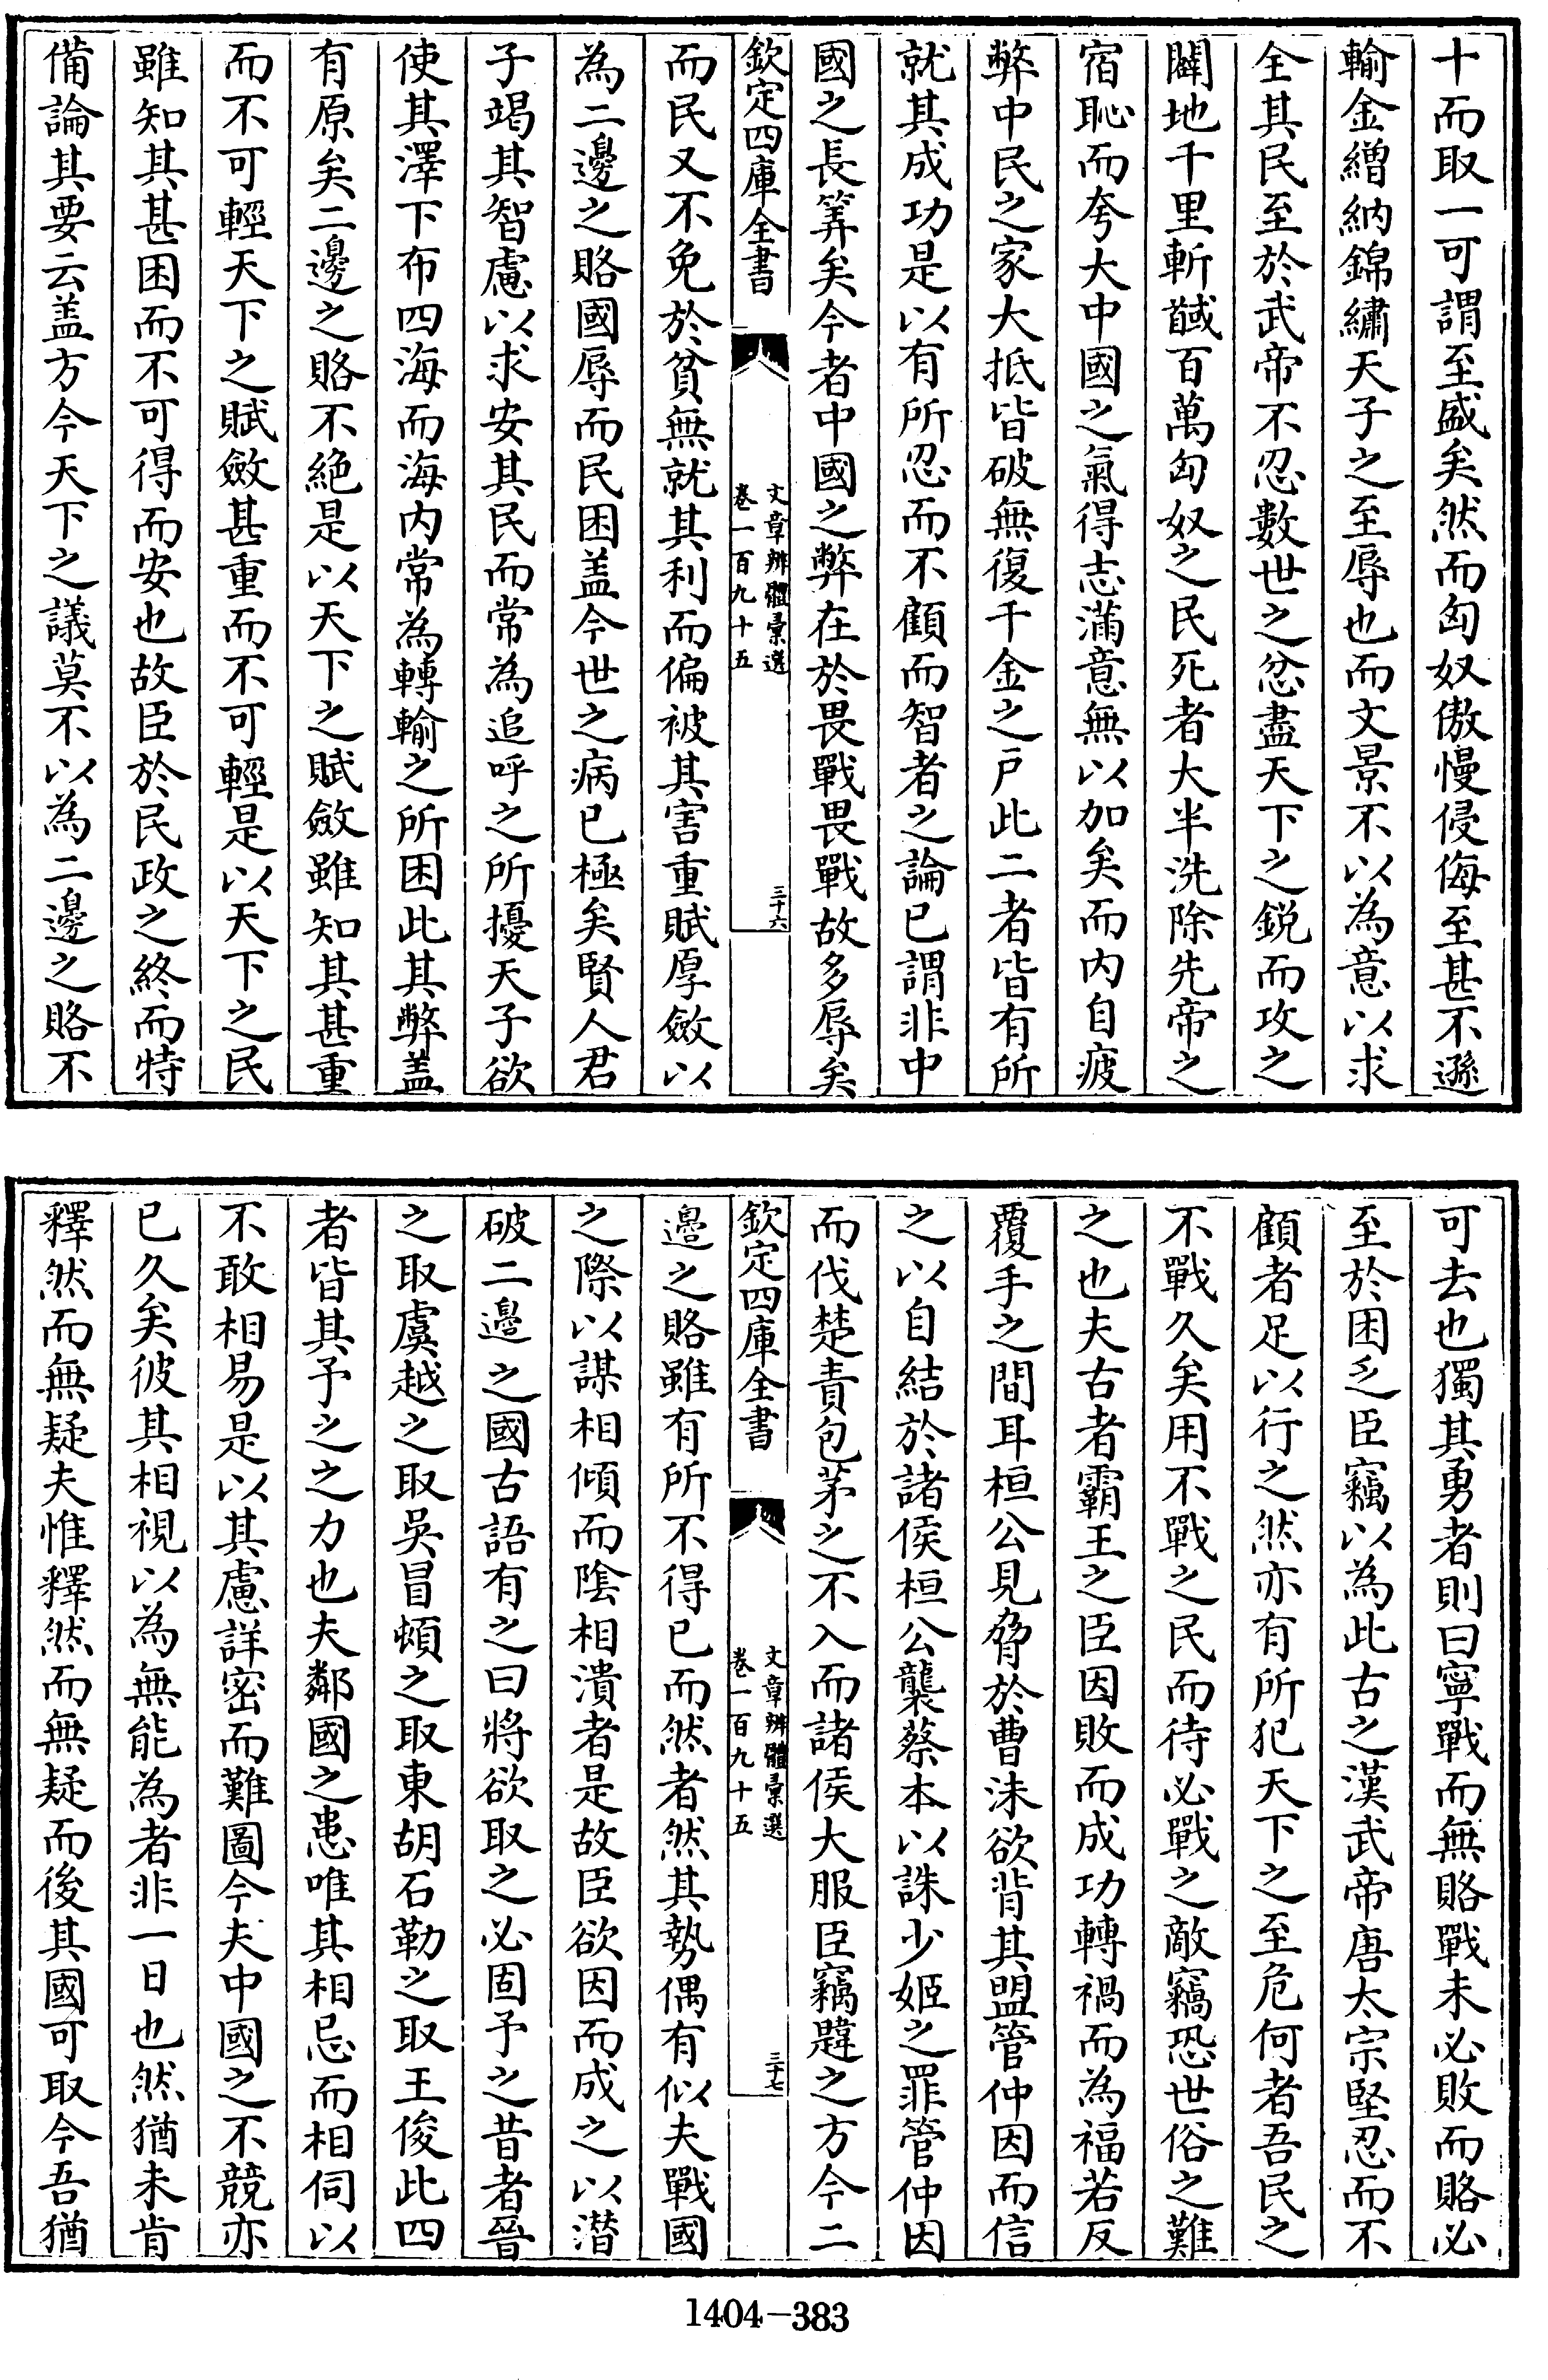 十而取一可謂至盛矣然而匈奴傲慢侵侮至甚不遜
輸金繒納錦繡天子之至辱也而文景不以為意以求
全其民至於武帝不忍數世之忿盡天下之鋭而攻之
闢地千里斬馘百萬匈奴之民死者大半洗除先帝之
宿恥而夸大中國之氣得志滿意無以加矣而内自疲
弊中民之家大抵皆破無復千金之戸此二者皆有所
就其成功是以有所忍而不顧而智者之論已謂非中
國之長筭矣今者中國之弊在於畏戰畏戰故多辱矣
欽定四庫全書
文章辨體彙選
卷一百九十五
三十六
而民又不免於貧無就其利而偏被其害重賦厚斂以
為二邊之賂國辱而民困盖今世之病已極矣賢人君
子竭其智慮以求安其民而常為追呼之所擾天子欲
使其澤下布四海而海内常為轉輸之所困此其弊盖
有原矣二邊之賂不絶是以天下之賦斂雖知其甚重
而不可輕天下之賦斂甚重而不可輕是以天下之民
雖知其甚困而不可得而安也故臣於民政之終而特
備論其要云盖方今天下之議莫不以為二邊之賂不
可去也獨其勇者則曰寧戰而無賂戰未必敗而賂必
至於困乏臣竊以為此古之漢武帝唐太宗堅忍而不
顧者足以行之然亦有所犯天下之至危何者吾民之
不戰久矣用不戰之民而待必戰之敵竊恐世俗之難
之也夫古者霸王之臣因敗而成功轉禍而為福若反
覆手之間耳桓公見脅於曹沬欲背其盟管仲因而信
之以自結於諸侯桓公襲蔡本以誅少姬之罪管仲因
而伐楚責包茅之不入而諸侯大服臣竊韙之方今二
欽定四庫全書
文章辨體彙選
卷一百九十五
三十七
邊之賂雖有所不得已而然者然其勢偶有似夫戰國
之際以謀相傾而隂相潰者是故臣欲因而成之以潛
破二邊之國古語有之曰將欲取之必固予之昔者晉
之取虞越之取吳冒頓之取東胡石勒之取王俊此四
者皆其予之之力也夫鄰國之患唯其相忌而相伺以
不敢相易是以其慮詳密而難圖今夫中國之不競亦
已久矣彼其相視以為無能為者非一日也然猶未肯
釋然而無疑夫惟釋然而無疑而後其國可取今吾猶
1404-383